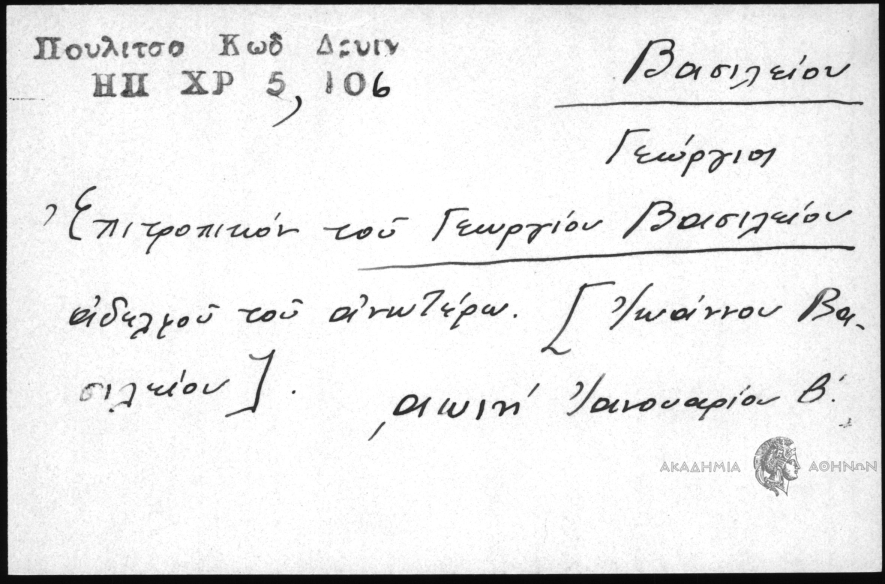 Πουλιτσα Κωδ Δρυιν
ΗΠ ΧΡ 5, 106
Βασιλείου
Γεώργιος
Ἐπιτροπικόν τοῦ Γεωργίου Βασιλείου
ἀδελφοῦ τοῦ ἀνωτέρω. [Ἰωάννου Βα-
σιλείου].
Ἰανουαρίου β΄.
ΑΚΑΔΗΜΙΑ ΑΘΗΝΩΝ